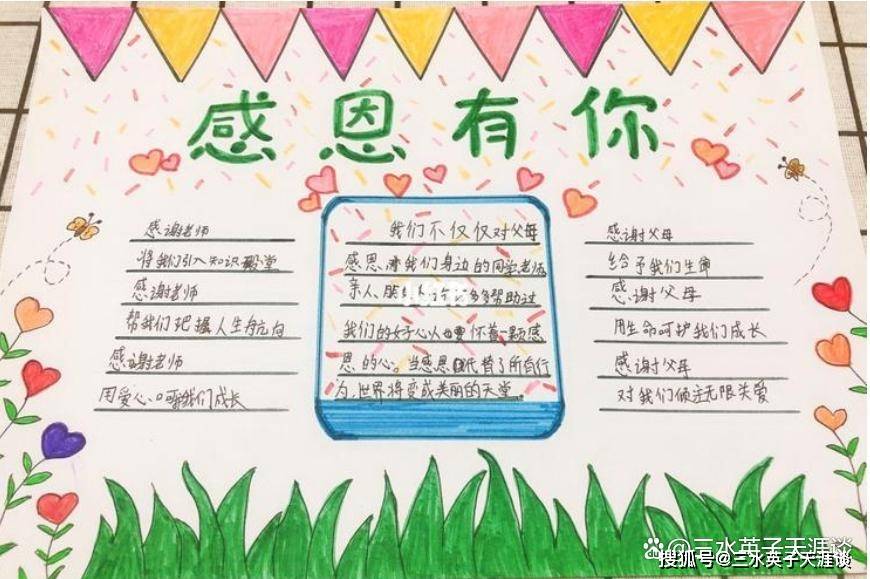 感恩有你
感谢老师
将我们引入知识殿堂
感谢老师
帮我们把握人生航向
感谢老师
用爱心呵我们成长
我们不仅仅对父母
感恩,对我们身边的同学老师
亲人、朋多帮助过
我们的好心人也要怀着一颗感
恩的心。当感恩代替了所有行
为,世界将变成美丽的天堂。
感谢父母
给予我们生命
感谢父母
用生命呵护我们成长
感谢父母
对我们倾注无限关爱
小红书
@三水英子天涯谈
搜狐号@三水英子天涯谈